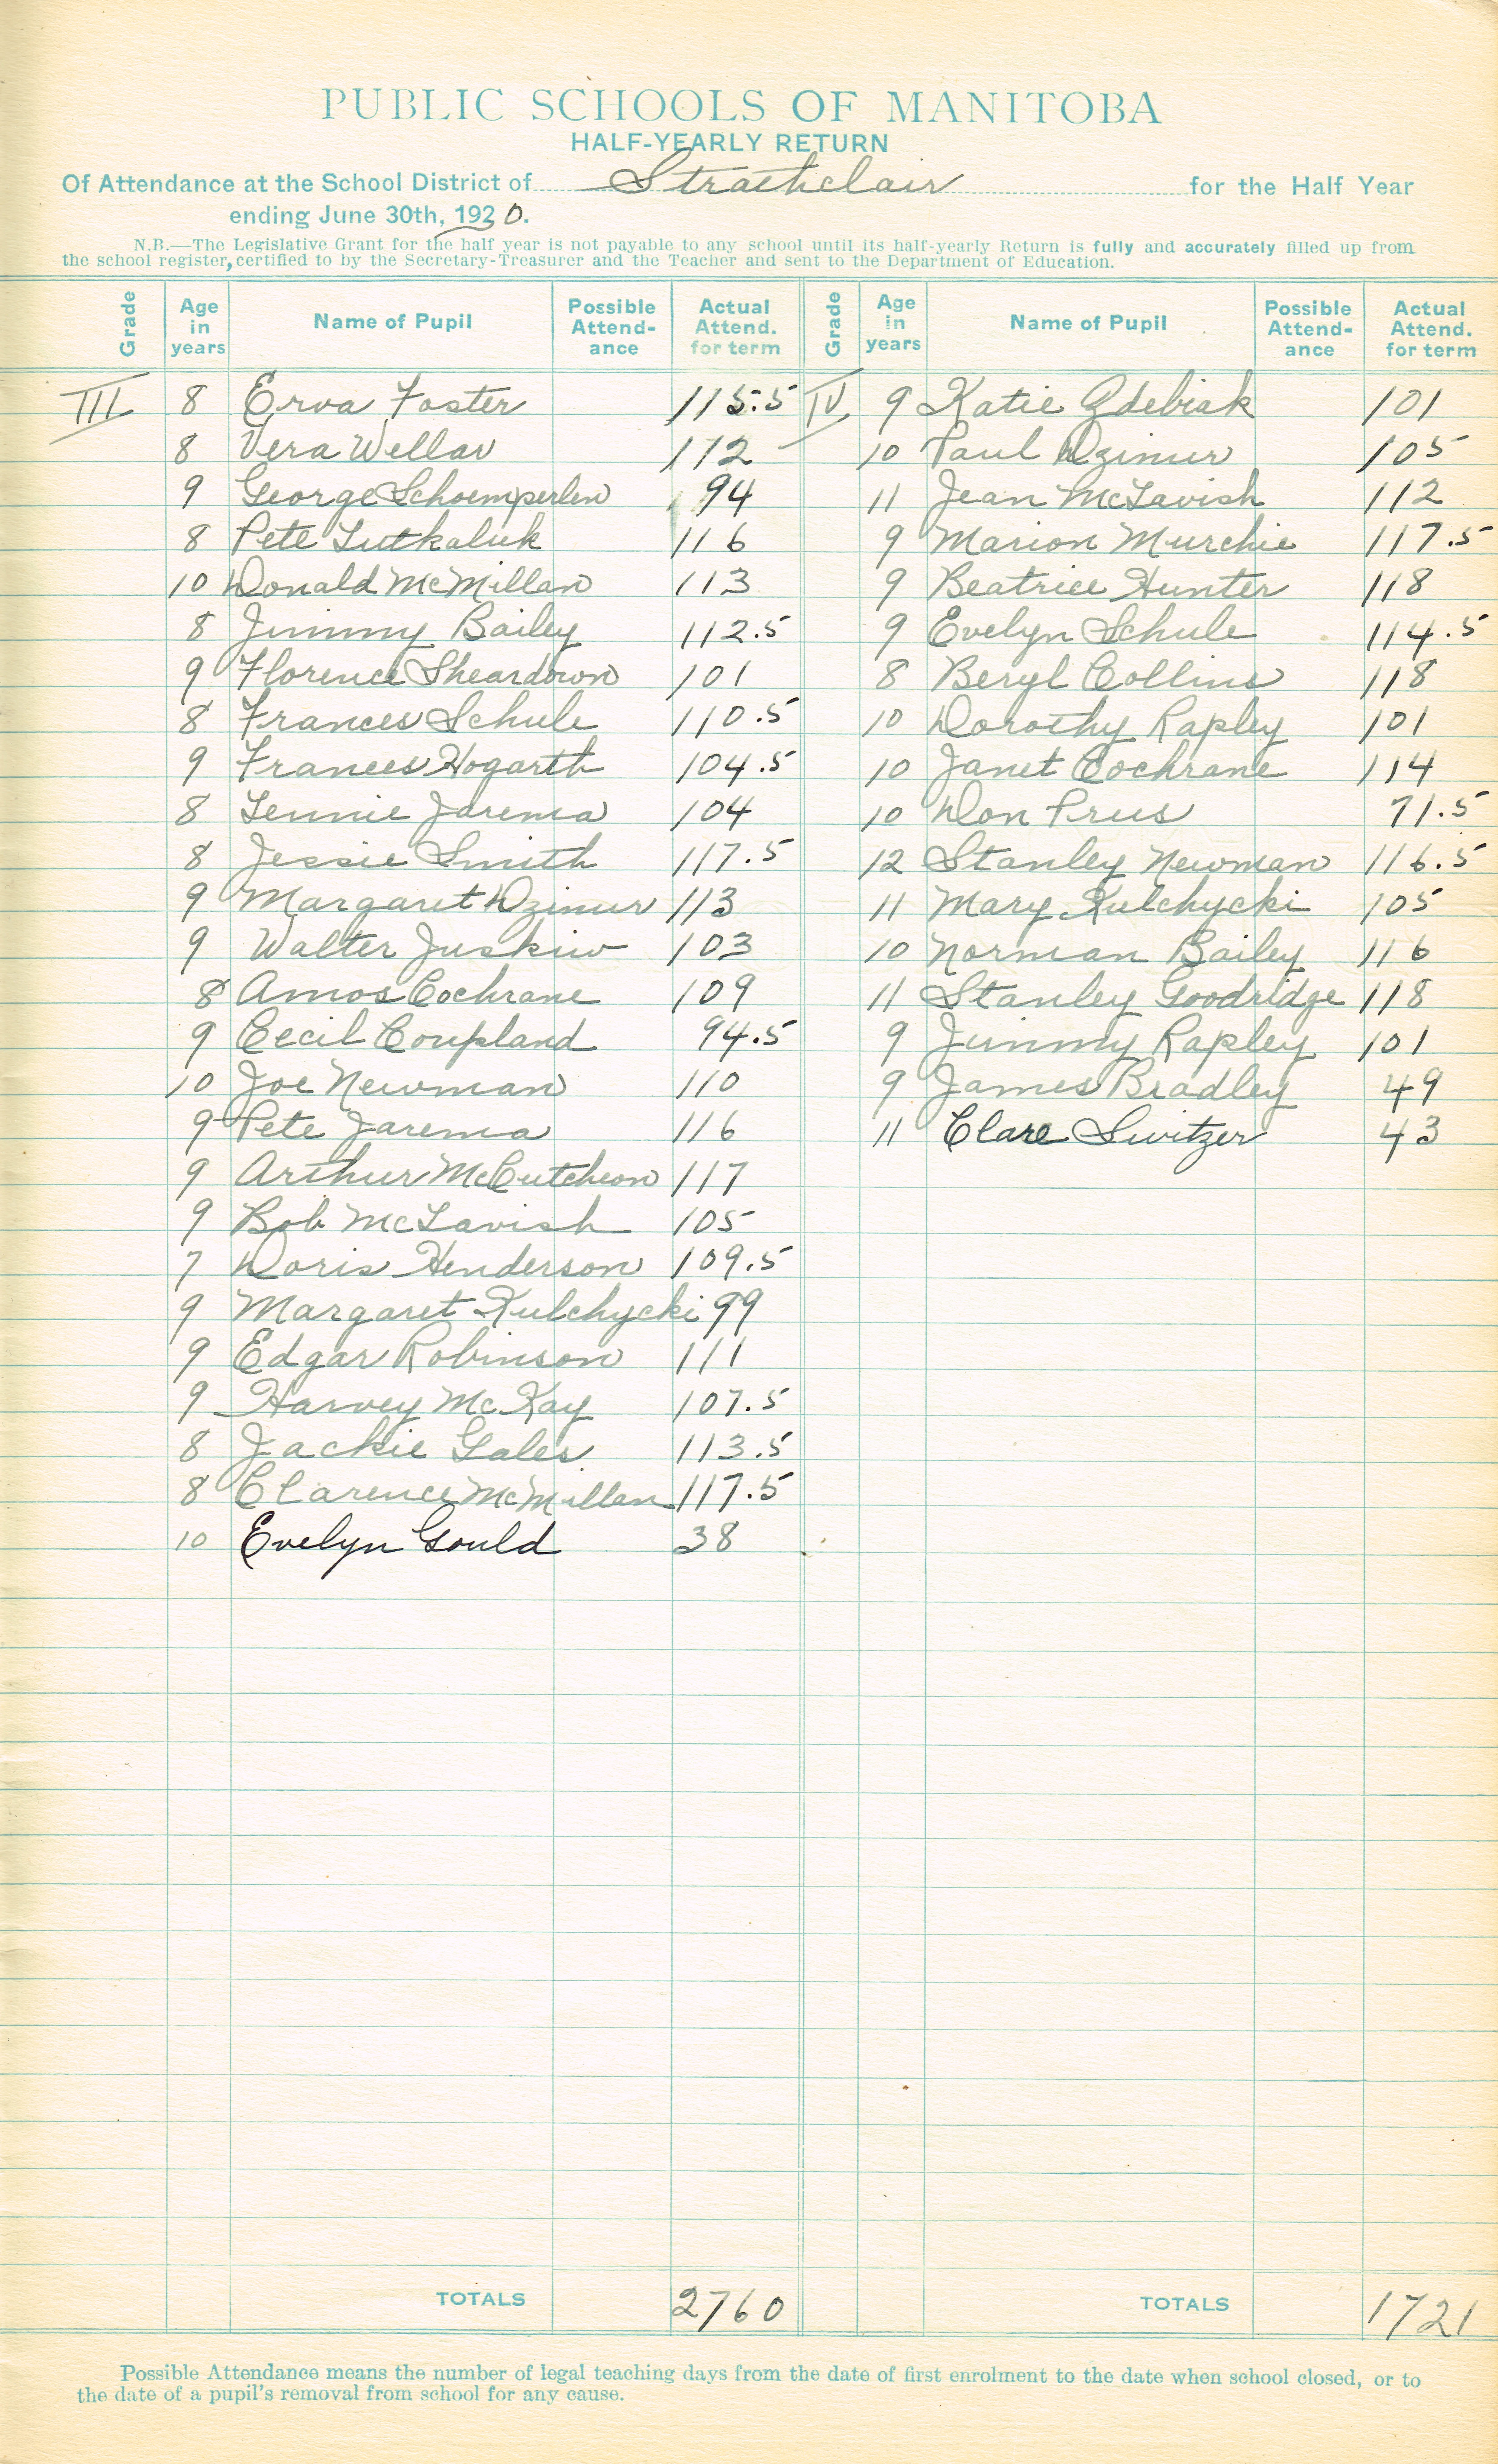 PUBLIC SCHOOLS OF MANITOBA
HALF-YEARLY RETURN
Of Attendance at the School District of Strathclair for the Half Year
ending June 30th, 1920.
N.B.—The Legislative Grant for the half year is not payable to any school until its half-yearly Return is fully and accurately filled up from
the school register, certified to by the Secretary-Treasurer and the Teacher and sent to the Department of Education.
Grade Age in years Name of Pupil Possible Attend-ance Actual Attend. for term Grade Age in years Name of Pupil Possible Attend-ance Actual Attend. for term
III 8 Erva Foster 115.5 IV 9 Katie Zdebiak 101
8 Vera Wellar 112 10 Paul Dzimir 105
9 George Schoemperlen 94 11 Jean McTavish 112
8 Pete Lutkaluk 116 9 Marion Murchie 117.5
10 Donald McMillan 113 9 Beatrice Hunter 118
8 Jimmy Bailey 112.5 9 Evelyn Schule 114.5
9 Florence Sheardown 101 8 Beryl Collins 118
8 Frances Schule 110.5 10 Dorothy Rapley 101
9 Frances Hogarth 104.5 10 Janet Cochrane 114
8 Jennie Jarema 104 10 Don Prus 71.5
8 Jessie Smith 117.5 12 Stanley Newman 116.5
9 Margaret Dzimir 113 11 Mary Kulchycki 105
9 Walter Juskiw 103 10 Norman Bailey 116
8 Amos Cochrane 109 11 Stanley Goodridge 118
9 Cecil Coupland 94.5 9 Jimmy Rapley 101
10 Joe Newman 110 9 James Bradley 49
9 Pete Jarema 116 11 Clare Switzer 43
9 Arthur McCutcheon 117
9 Bob McTavish 105
7 Doris Henderson 109.5
9 Margaret Kulchycki 99
9 Edgar Robinson 111
9 Harvey McKay 107.5
8 Jackie Gales 113.5
8 Clarence McMillan 117.5
10 Evelyn Gould 38
TOTALS 2760 TOTALS 1721
Possible Attendance means the number of legal teaching days from the date of first enrolment to the date when school closed, or to
the date of a pupil's removal from school for any cause.